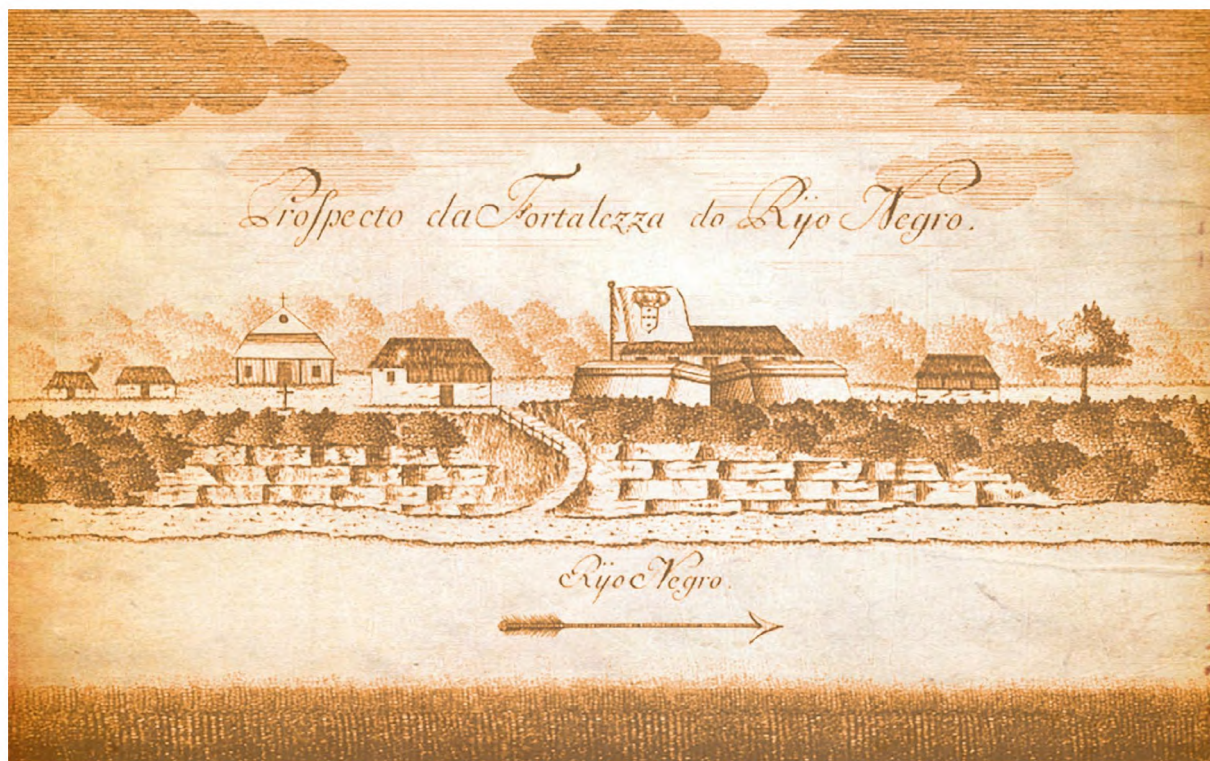 Proſpecto da Fortalezza do Rijo Negro.
Rijo Negro.